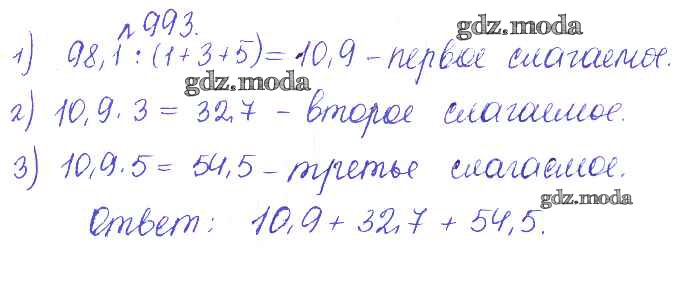 №993.
gdz.moda
1) 98,1 : (1+3+5) = 10,9 – первое слагаемое.
gdz.moda
2) 10,9 · 3 = 32,7 – второе слагаемое.
3) 10,9 · 5 = 54,5 – третье слагаемое.
gdz.moda
Ответ: 10,9 + 32,7 + 54,5.